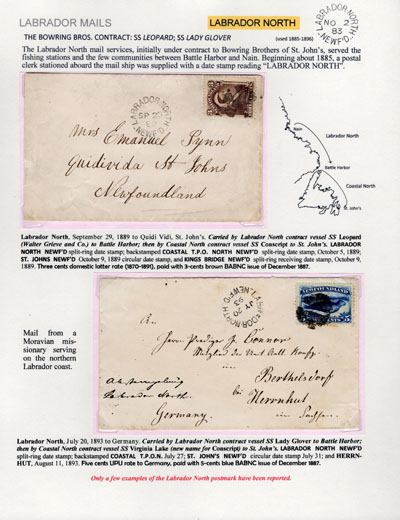 LABRADOR MAILS
LABRADOR NORTH
THE BOWRING BROS. CONTRACT: SS LEOPARD; SS LADY GLOVER
(used 1885-1896)
LABRADOR-NORTH
NO 2
83
NEWF'D
The Labrador North mail services, initially under contract to Bowring Brothers of St. John's, served the
fishing stations and the few communities between Battle Harbor and Nain. Beginning about 1885, a postal
clerk stationed aboard the mail ship was supplied with a date stamp reading "LABRADOR NORTH".
LABRADOR-NORTH
NEWF'D
Mrs Emanuel Pynn
Quidivida St Johns
Newfoundland
Nain
Labrador North
Battle Harbor
Coastal North
St. John's
Labrador North, September 29, 1889 to Quidi Vidi, St. John's. Carried by Labrador North contract vessel SS Leopard
(Walter Grieve and Co.) to Battle Harbor; then by Coastal North contract vessel SS Conscript to St. John's. LABRADOR
NORTH NEWF'D split-ring date stamp; backstamped COASTAL T.P.O. NORTH NEWF'D split-ring date stamp, October 5, 1889;
ST. JOHNS NEWF'D October 9, 1889 circular date stamp, and KINGS BRIDGE NEWF'D split-ring receiving date stamp, October 9,
1889. Three cents domestic latter rate (1870-1891), paid with 3-cents brown BABNC issue of December 1887.
Mail from a
Moravian mis-
sionary serving
on the northern
Labrador coast.
LABRADOR-NORTH
JY 20
93
NEWF'D
An
Berthelsdorf
bei Herrnhut
in Sachsen
Labrador North.
Germany.
Labrador North, July 20, 1893 to Germany. Carried by Labrador North contract vessel SS Lady Glover to Battle Harbor;
then by Coastal North contract vessel SS Virginia Lake (new name for Conscript) to St. John's. LABRADOR NORTH NEWF'D
split-ring date stamp; backstamped COASTAL T.P.O.N. July 27; ST. JOHN'S NEWF'D circular date stamp July 31; and HERRN-
HUT, August 11, 1893. Five cents UPU rate to Germany, paid with 5-cents blue BABNC issue of December 1887.
Only a few examples of the Labrador North postmark have been reported.